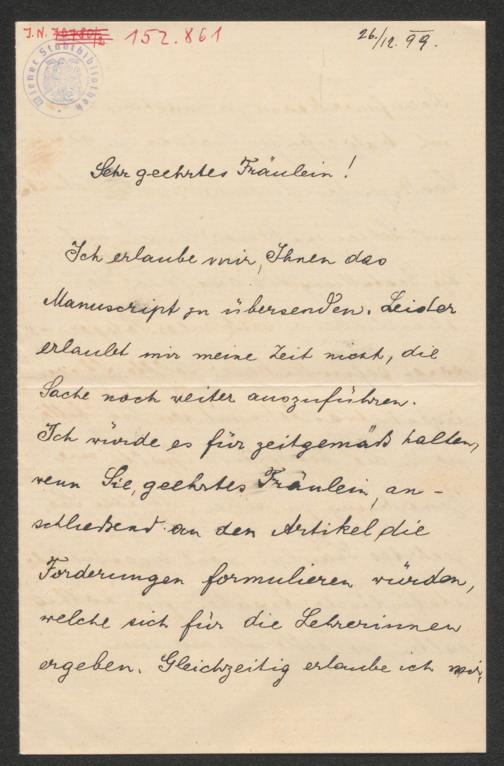 J.N. 152.861
26/12. 99.
Wiener Stadtbibliothek
Sehr geehrtes Fräulein!
Ich erlaube mir, Ihnen das
Manuscript zu übersenden. Leider
erlaubt mir meine Zeit nicht, die
Sache noch weiter auszuführen.
Ich würde es für zeitgemäß halten,
wenn Sie, geehrtes Fräulein, an-
schließend an den Artikel die
Forderungen formulieren würden,
welche sich für die Lehrerinnen
ergeben. Gleichzeitig erlaube ich mir,